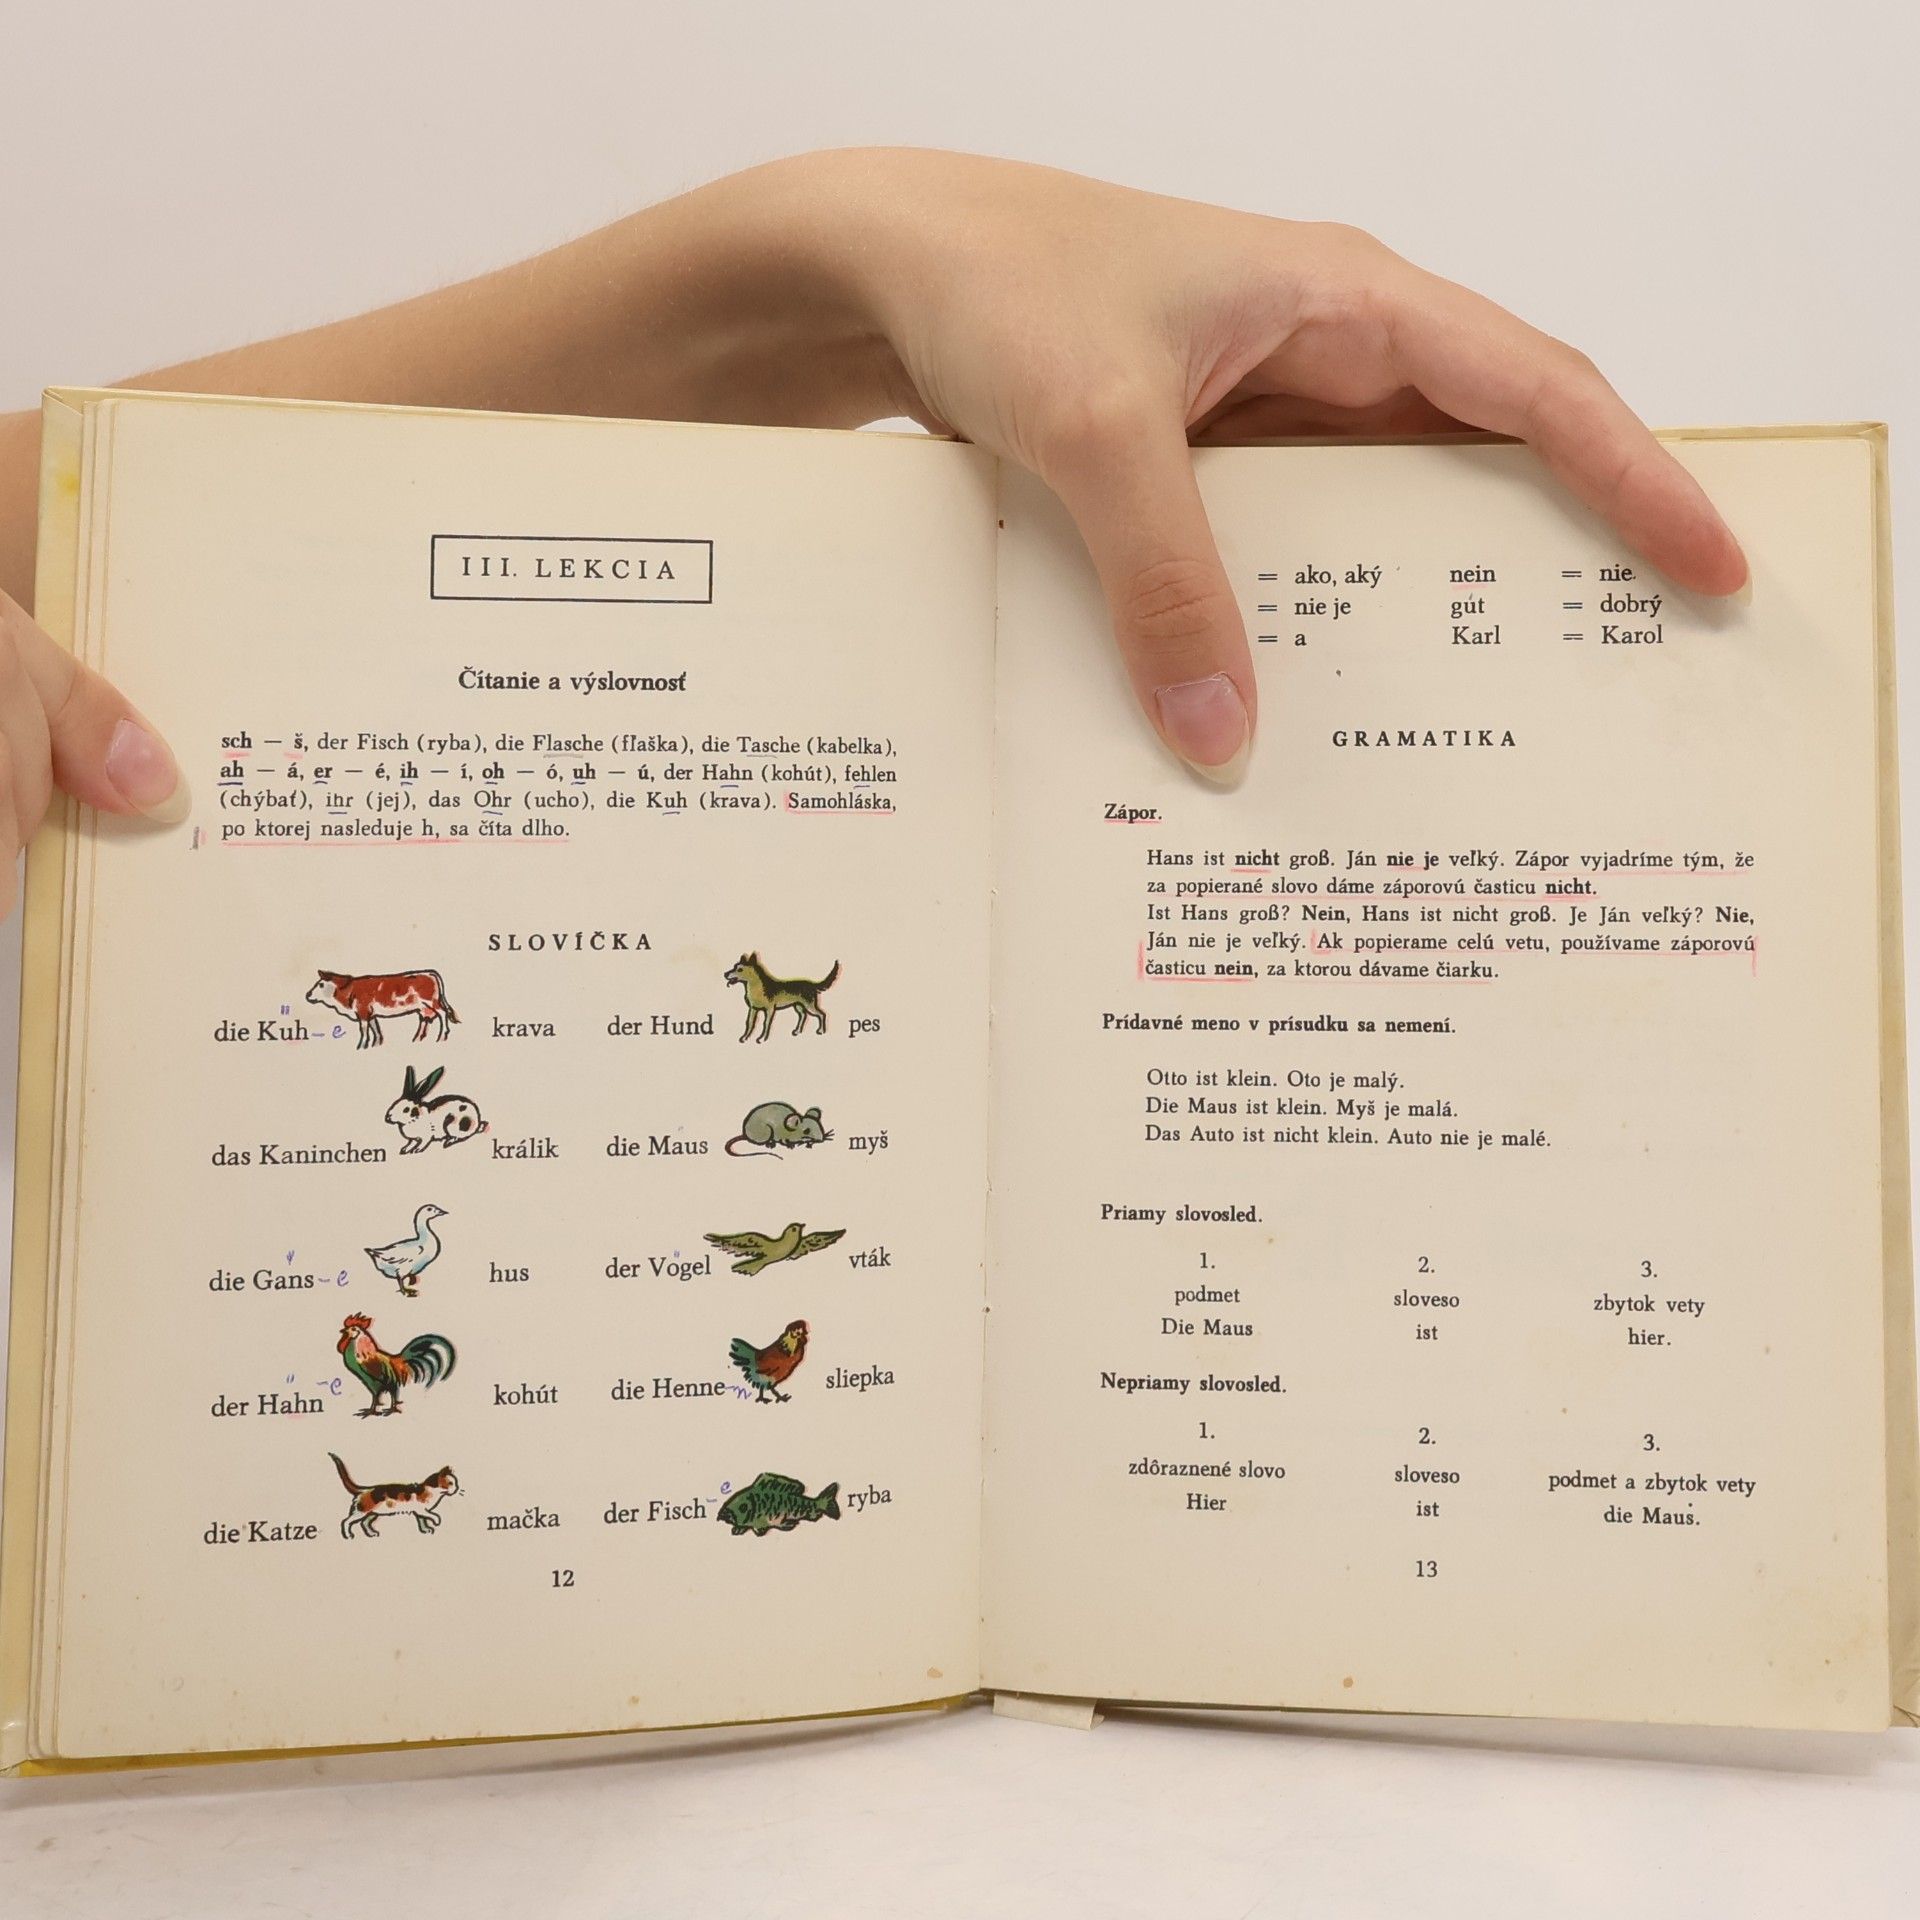 III. LEKCIA
Čítanie a výslovnosť
sch — š, der Fisch (ryba), die Flasche (fľaška), die Tasche (kabelka),
ah — á, er — é, ih — í, oh — ó, uh — ú, der Hahn (kohút), fehlen
(chýbať), ihr (jej), das Ohr (ucho), die Kuh (krava). Samohláska,
po ktorej nasleduje h, sa číta dlho.
SLOVÍČKA
die Küh-e krava der Hund pes
das Kaninchen králik die Maus myš
die Gans-e hus der Vögel vták
der Hahn-e kohút die Henne-n sliepka
die Katze mačka der Fisch-e ryba
12
= ako, aký nein = nie
= nie je gut = dobrý
= a Karl = Karol
GRAMATIKA
Zápor.
Hans ist nicht groß. Ján nie je veľký. Zápor vyjadríme tým, že
za popierané slovo dáme záporovú časticu nicht.
Ist Hans groß? Nein, Hans ist nicht groß. Je Ján veľký? Nie,
Ján nie je veľký. Ak popierame celú vetu, používame záporovú
časticu nein, za ktorou dávame čiarku.
Prídavné meno v prísudku sa nemení.
Otto ist klein. Oto je malý.
Die Maus ist klein. Myš je malá.
Das Auto ist nicht klein. Auto nie je malé.
Priamy slovosled.
1. 2. 3.
podmet sloveso zbytok vety
Die Maus ist hier.
Nepriamy slovosled.
1. 2. 3.
zdôraznené slovo sloveso podmet a zbytok vety
Hier ist die Maus.
13